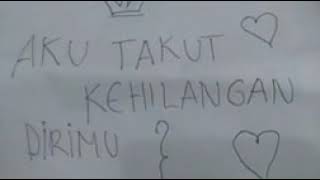 AKU TAKUT
KEHILANGAN
DIRIMU